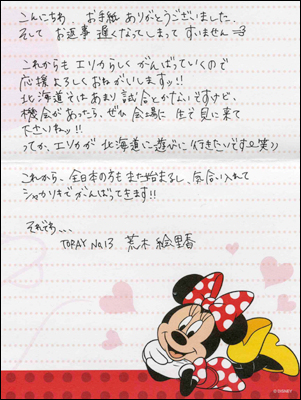 こんにちわ。お手紙ありがとうございました。
そして お返事 遅くなってしまって すいません
これからも エリカらしく がんばっていくので
応援よろしくおねがいします!!
北海道では あまり試合とかないですけど、
機会があったら、ぜひ 会場に 生で 見に来て
下さいねッ!!
ってか、エリカが 北海道に 遊びに行きたいです(笑)
これから、全日本の方も また始まるし、気合い入れて
シャカリキでがんばってきます!!
それでわ、、、
TORAY No.13 荒木 絵里香
©DISNEY